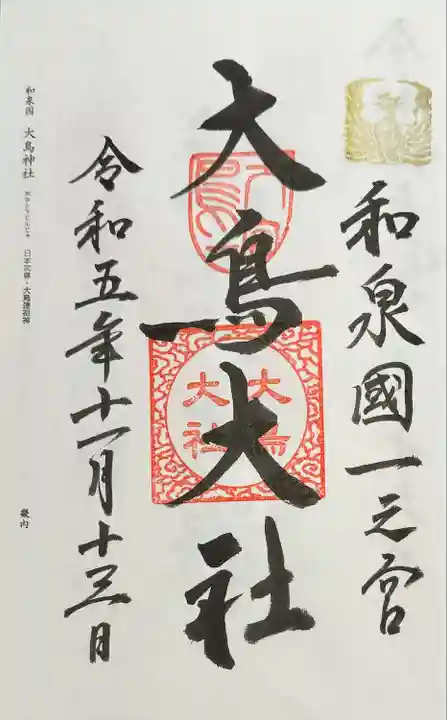 和泉國一之宮
大鳥大社
大鳥
大社
令和五年十一月十三日
和泉国 大鳥神社 おおとりじんじゃ 日本武尊・大鳥連祖神
畿内